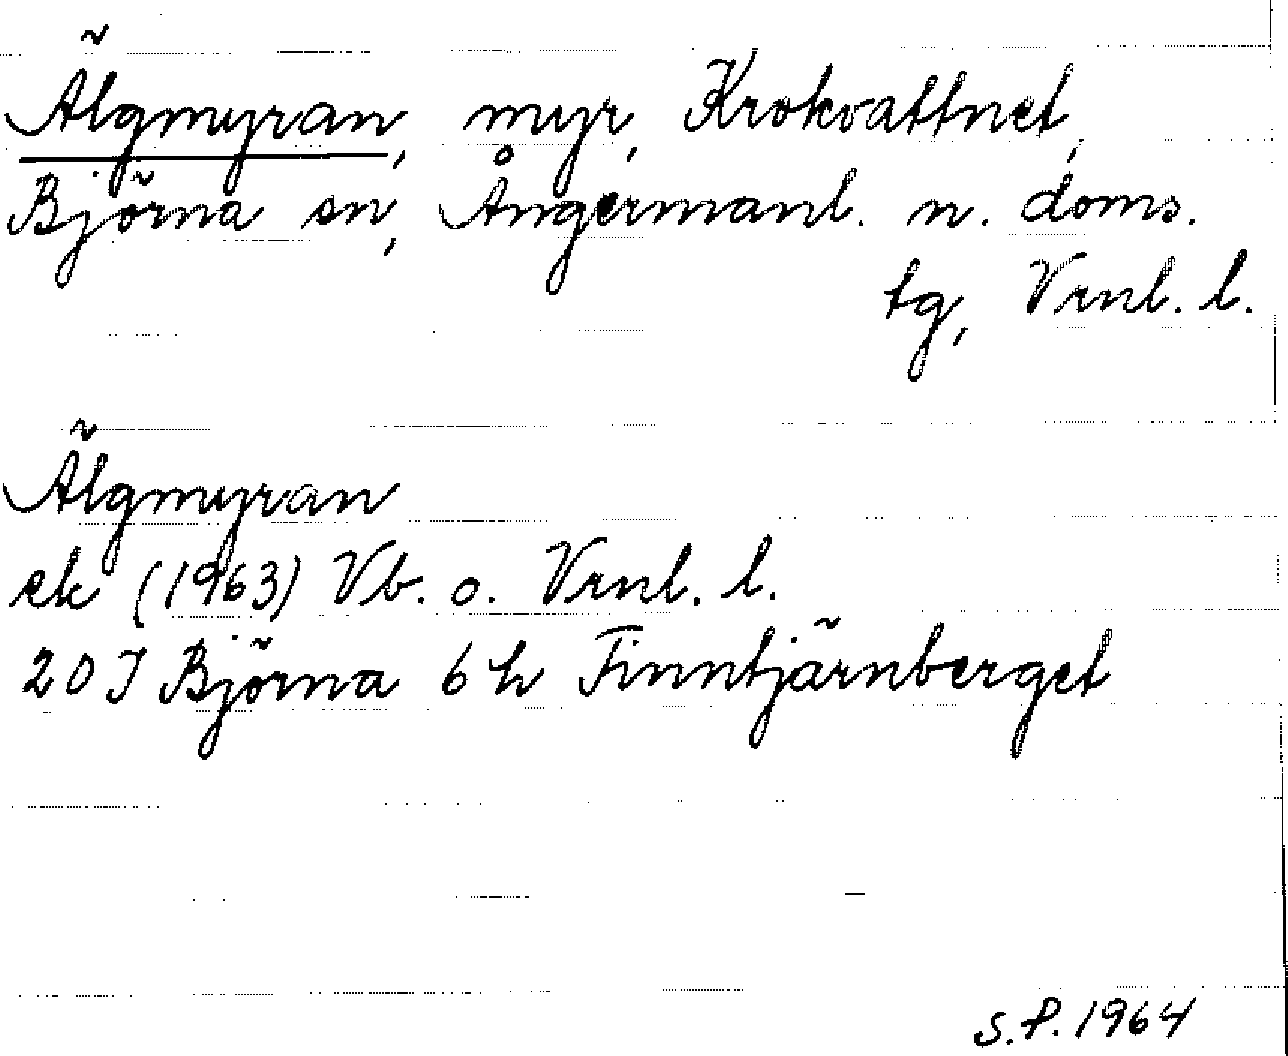 Älgmyran, myr, Krokvattnet,
Björna sn, Ångermanl. n. doms.
tg, Vrnl. l.
Älgmyran
ek (1963) Vb. o. Vrnl. l.
20 J Björna 6 h Finntjärnberget
S.P. 1964